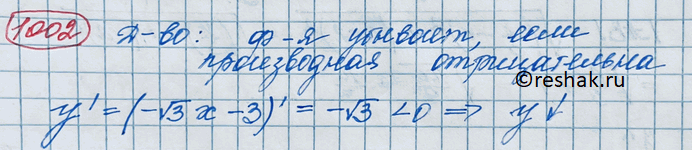 1002 Д-во: ф-я убывает, если
производная отрицательна
©reshak.ru
y' = (-√3 x - 3)' = -√3 < 0 ⇒ y ↓